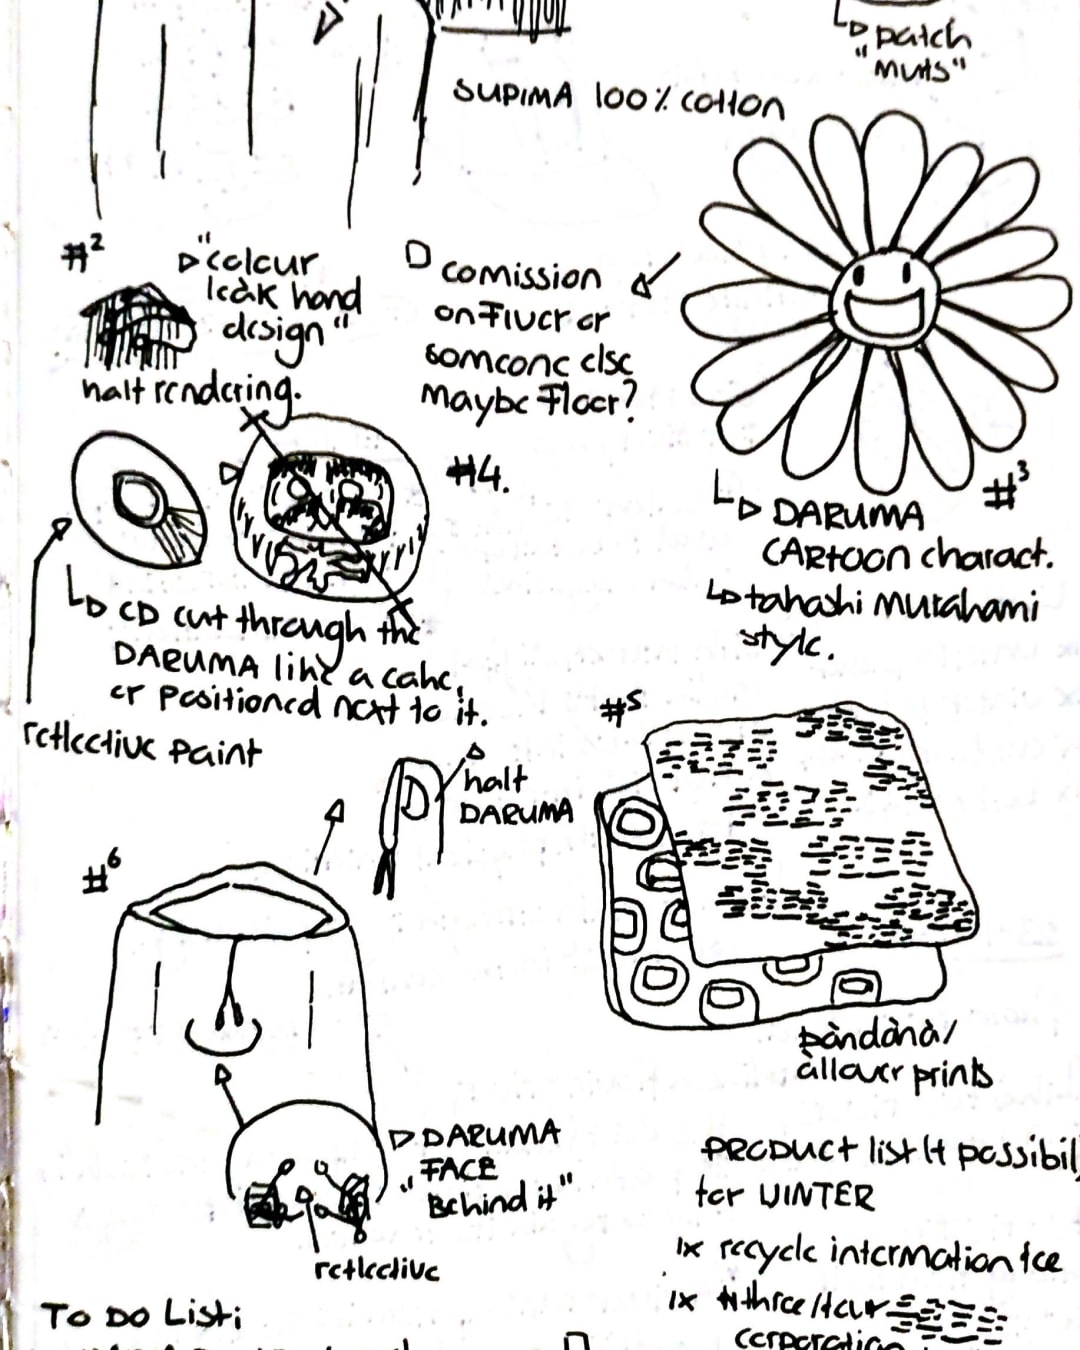 patch
"muts"
SUPIMA 100% cotton
#2
"colour
leak hand
design"
half rendering.
comission
on Fiver or
someone else
maybe Floor?
#3
DARUMA
CARTOON charact.
takashi Murakami
style.
#4.
CD cut through the
DARUMA like a cake,
or positioned next to it.
reflective paint
half
DARUMA
#5
bandana/
allover prints
#6
DARUMA
"FACE
Behind it"
reflective
PRODUCT list
for WINTER
1x recycle information tee
1x three/four
corporation
To DO List: